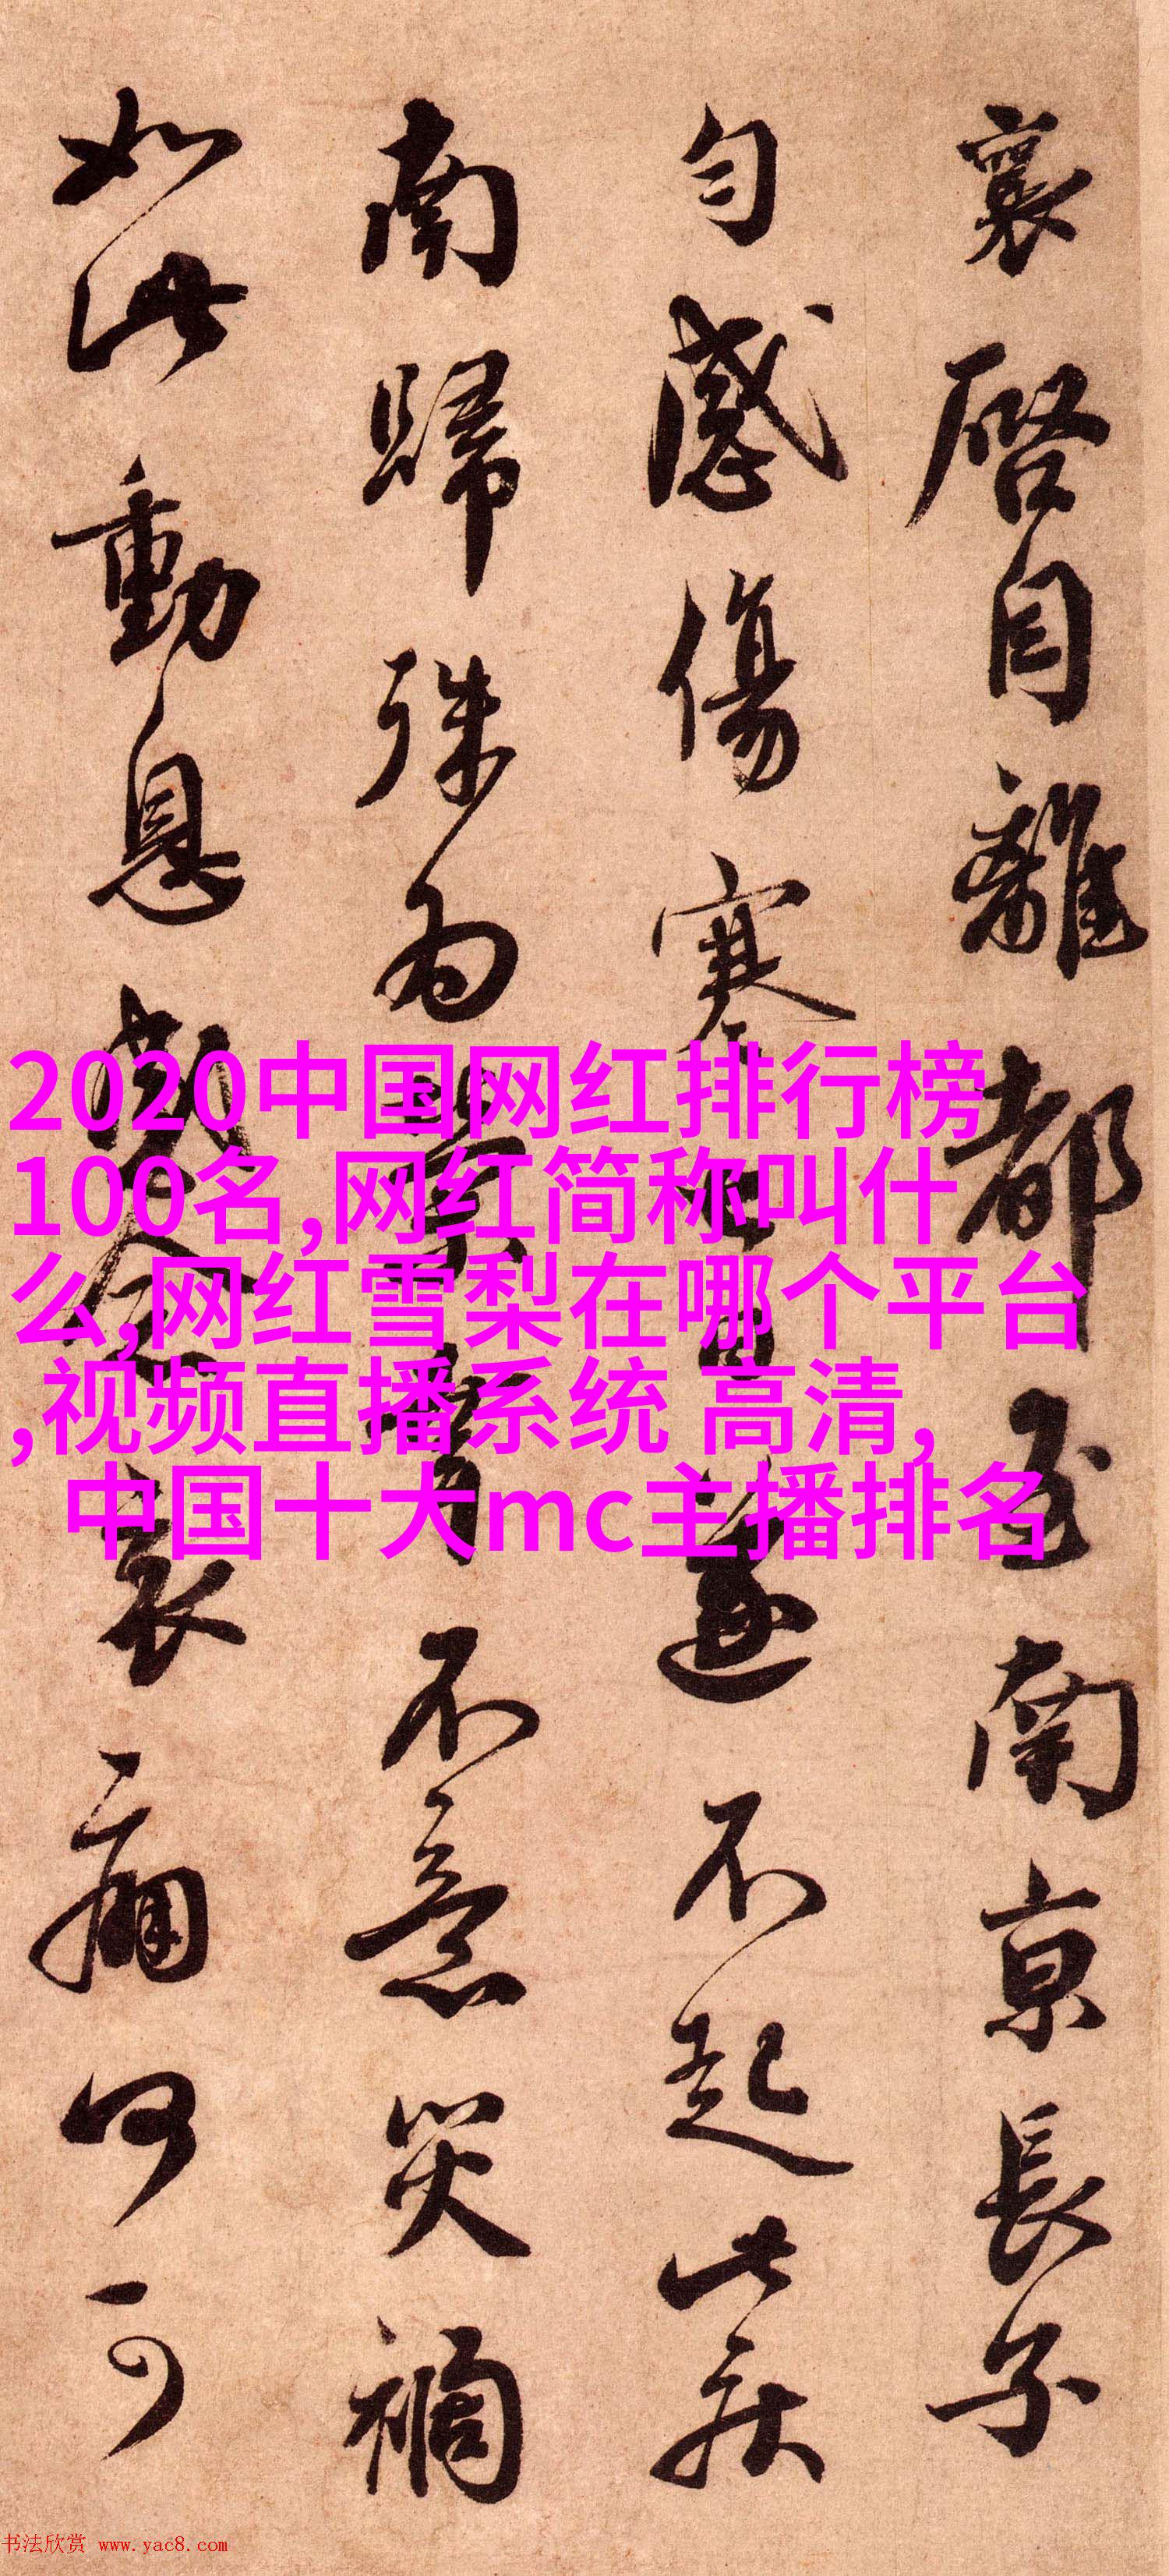 襄啓自離都至南京長子
勻感傷寒七日遂不起此疾
南歸殊為榮幸不意災禍
如此動息感念哀痛何可
2020中国网红排行榜
100名,网红简称叫什
么,网红雪梨在哪个平台
,视频直播系统 高清,
中国十大mc主播排名
书法欣赏 www.yac8.com